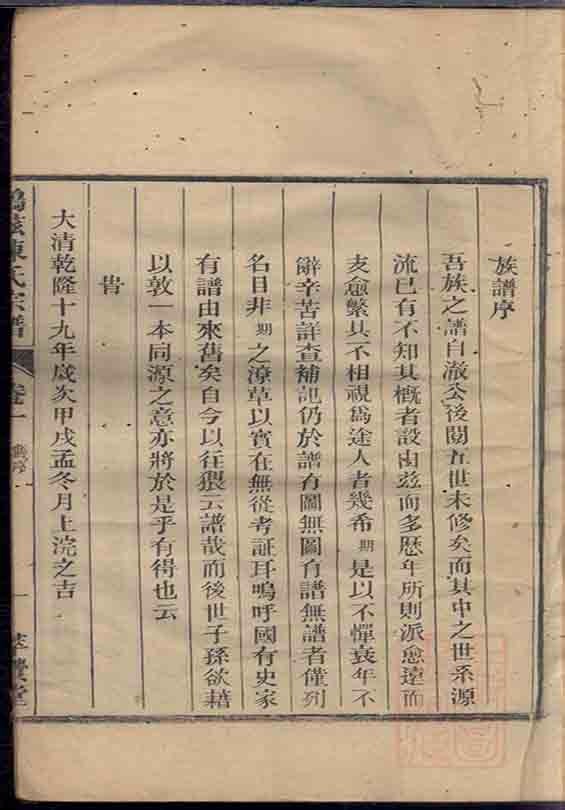 族譜序
吾族之譜自澈公後閱五世未修矣而其中之世系源
流已有不知其概者設由兹而多歷年所則派愈遠而
支愈繁其不相視為途人者幾希期是以不憚衰年不
辭辛苦詳查補記仍於譜有圖無圖有譜無譜者僅列
名目非期之潦草以實在無從考証耳嗚呼國有史家
有譜由來舊矣自今以往猥云譜哉而後世子孫欲藉
以敦一本同源之意亦將於是乎有得也云
旹
大清乾隆十九年歲次甲戌孟冬月上浣之吉
陳氏宗譜 卷一 序 一